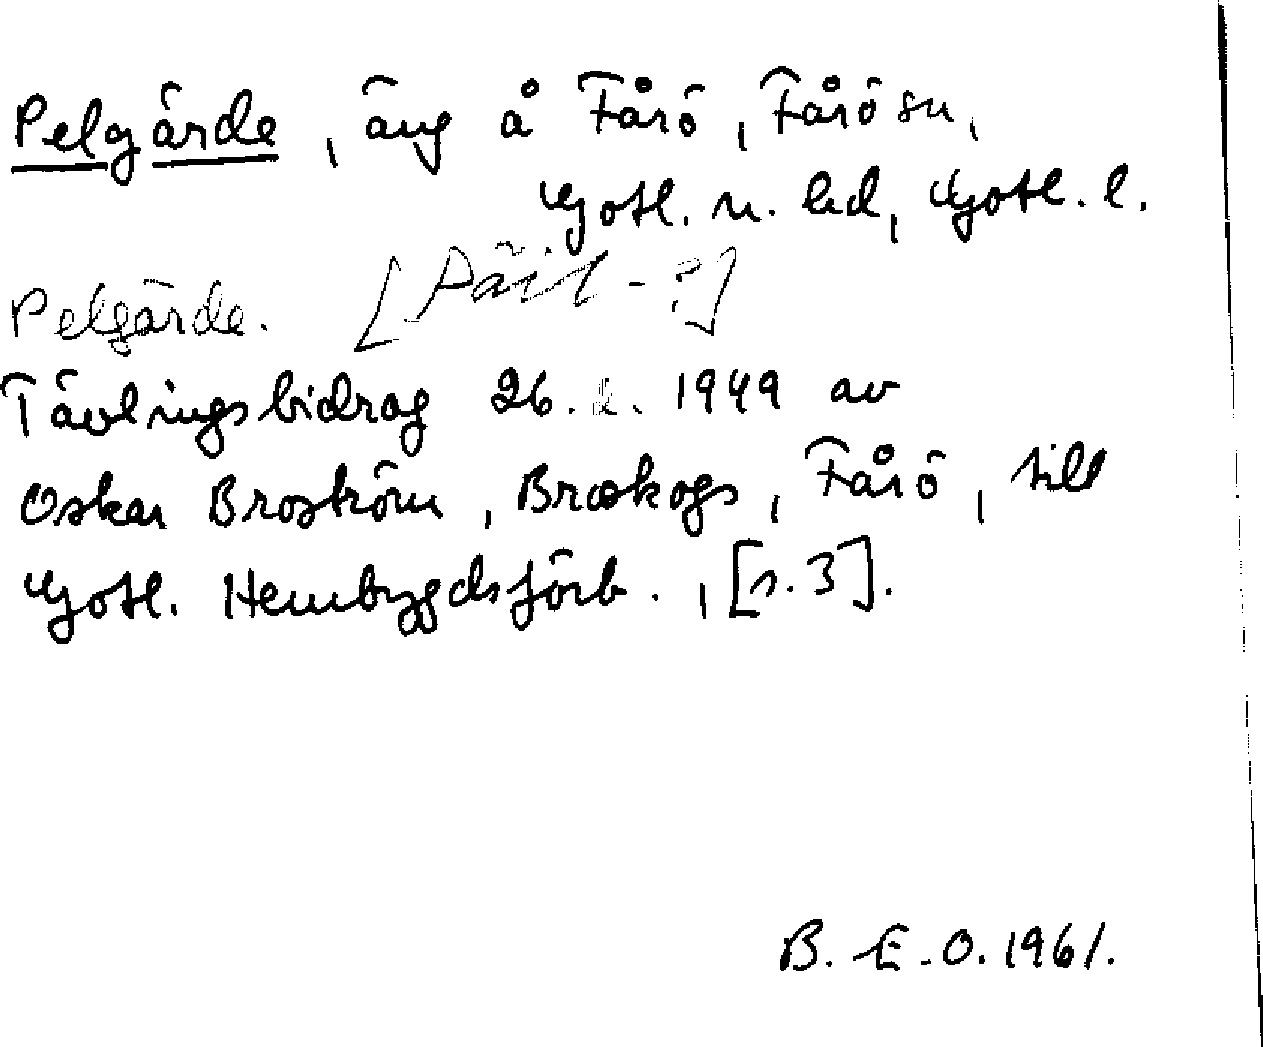 Pelgärde, äng å Fårö, Fårö sn,
Gotl. n. hd, Gotl. l.
Pelgärde. [Päil-?]
Tävlingsbidrag 26. 2. 1949 av
Oskar Broström, Broskogs, Fårö, till
Gotl. Hembygdsförb., [s. 3].
B. E-O. 1961.